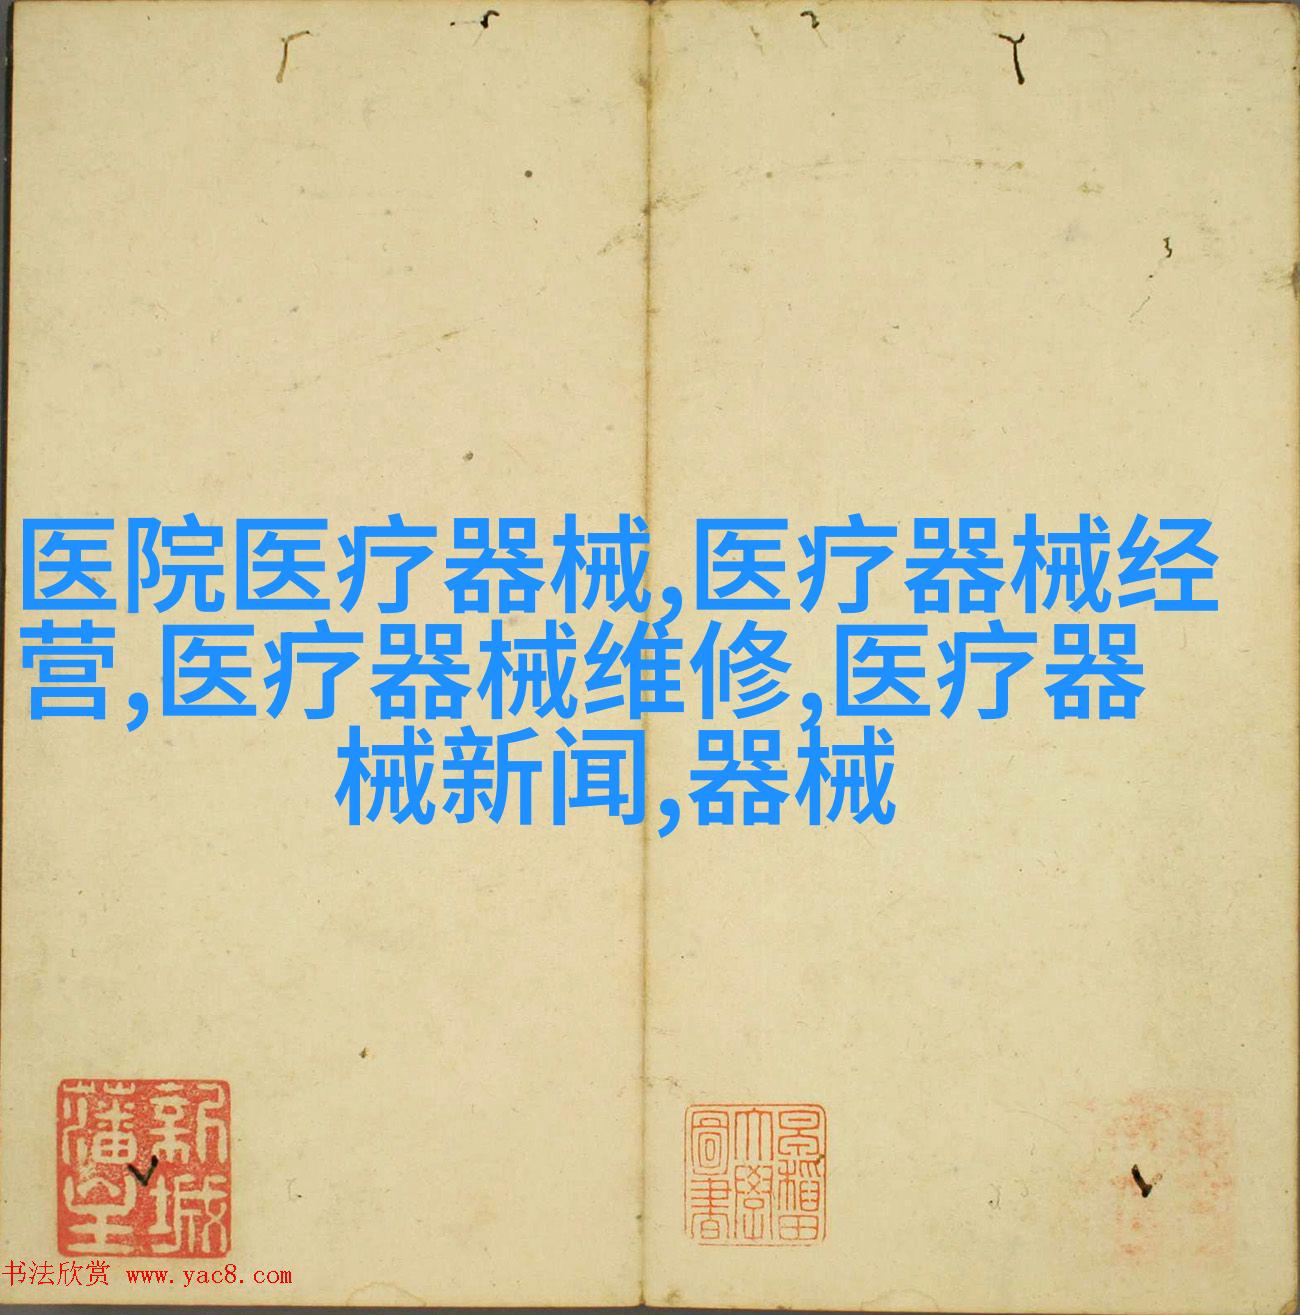 医院医疗器械,医疗器械经
营,医疗器械维修,医疗器
械新闻,器械
新城
藩室
早稻田
大學
圖書
书法欣赏 www.yac8.com